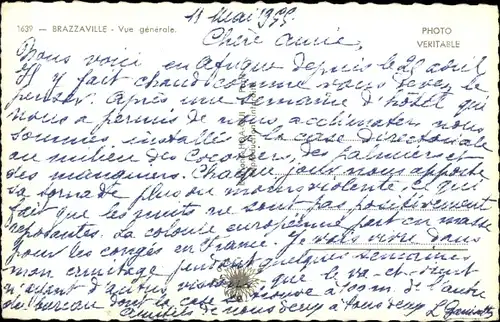 11 Mai 1955.
1639 — BRAZZAVILLE - Vue générale.
PHOTO
VERITABLE
Chère amie,
Nous voici en Afrique depuis le 22 avril
Il y fait chaud comme vous devez le
penser. Après une semaine d'hôtel qui
nous a permis de nous acclimater nous
sommes installés à la case directoriale
au milieu des Cocotiers, des palmiers et
des manguiers. Chaque jour nous apporte
sa tornade plus ou moins violente, ce qui
fait que les nuits ne sont pas positivement
reposantes. La colonie européenne part en masse
pour les congés en France. Je vais vivre dans
mon ermitage pendant quelques semaines
n'ayant d'autres que le va-et-vient
du bureau dont la case se trouve à 100 m. de l'autre
Amitiés de nous deux à tous deux